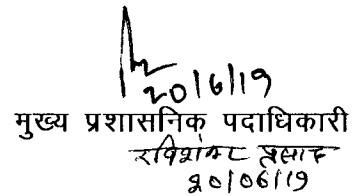 20/6/19
मुख्य प्रशासनिक पदाधिकारी
रविशंकर प्रसाद
20/06/19